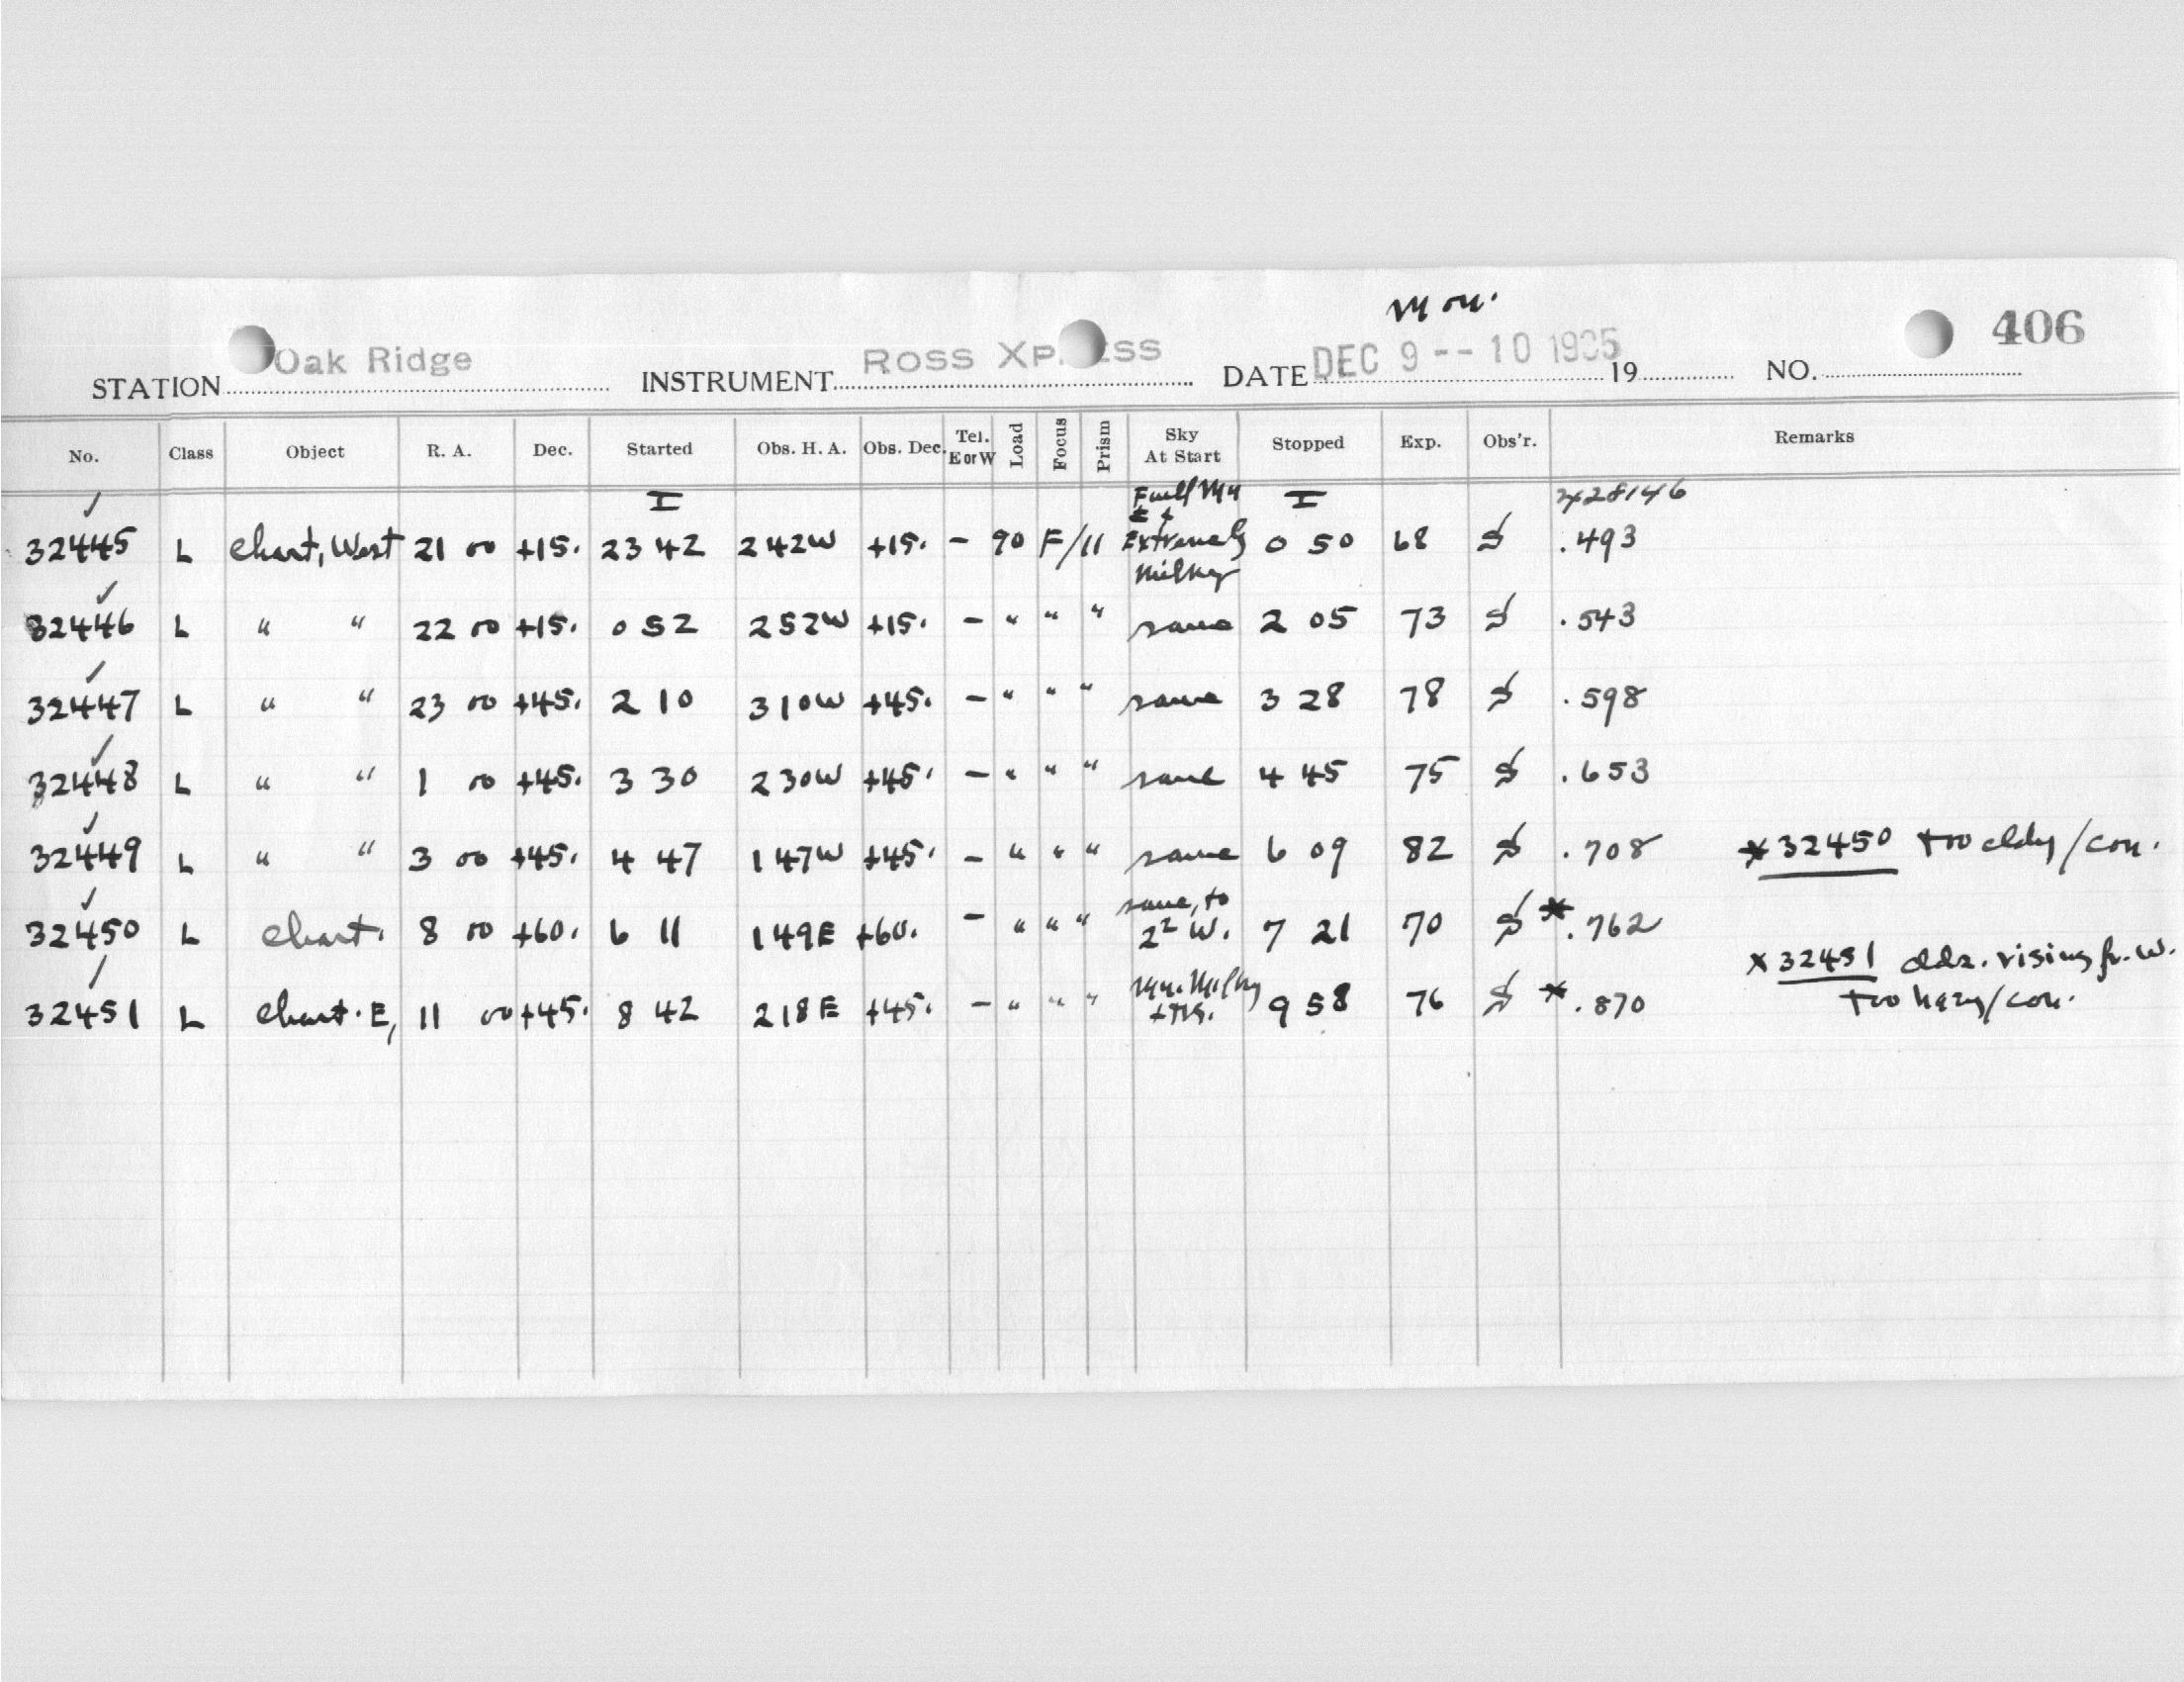 Mon.
Oak Ridge ROSS XP ESS DEC 9 -- 10 1935 406
STATION INSTRUMENT DATE 19 NO.
No. Class Object R. A. Dec. Started Obs. H. A. Obs. Dec. Tel. E or W Load Focus Prism Sky At Start Stopped Exp. Obs'r. Remarks
I I 2428146
32445 L Chart, West 21 00 +15. 23 42 242W +15. - 90 F/11 Extremely Milky 0 50 68 .493
32446 L " " 22 00 +15. 0 52 252W +15. - " " " same 2 05 73 .543
32447 L " " 23 00 +45. 2 10 310W +45. - " " " same 3 28 78 .598
32448 L " " 1 00 +45. 3 30 230W +45. - " " " same 4 45 75 .653
32449 L " " 3 00 +45. 4 47 147W +45. - " " " same 6 09 82 .708 *32450 too cldy/con.
32450 L Chart. 8 00 +60. 6 11 149E +60. - " " " same, to 2² W. 7 21 70 * .762
32451 L Chart. E, 11 00 +45. 8 42 218E +45. - " " " Milky 9 58 76 * .870 x 32451 clds. rising fr. W.
too hazy/con.